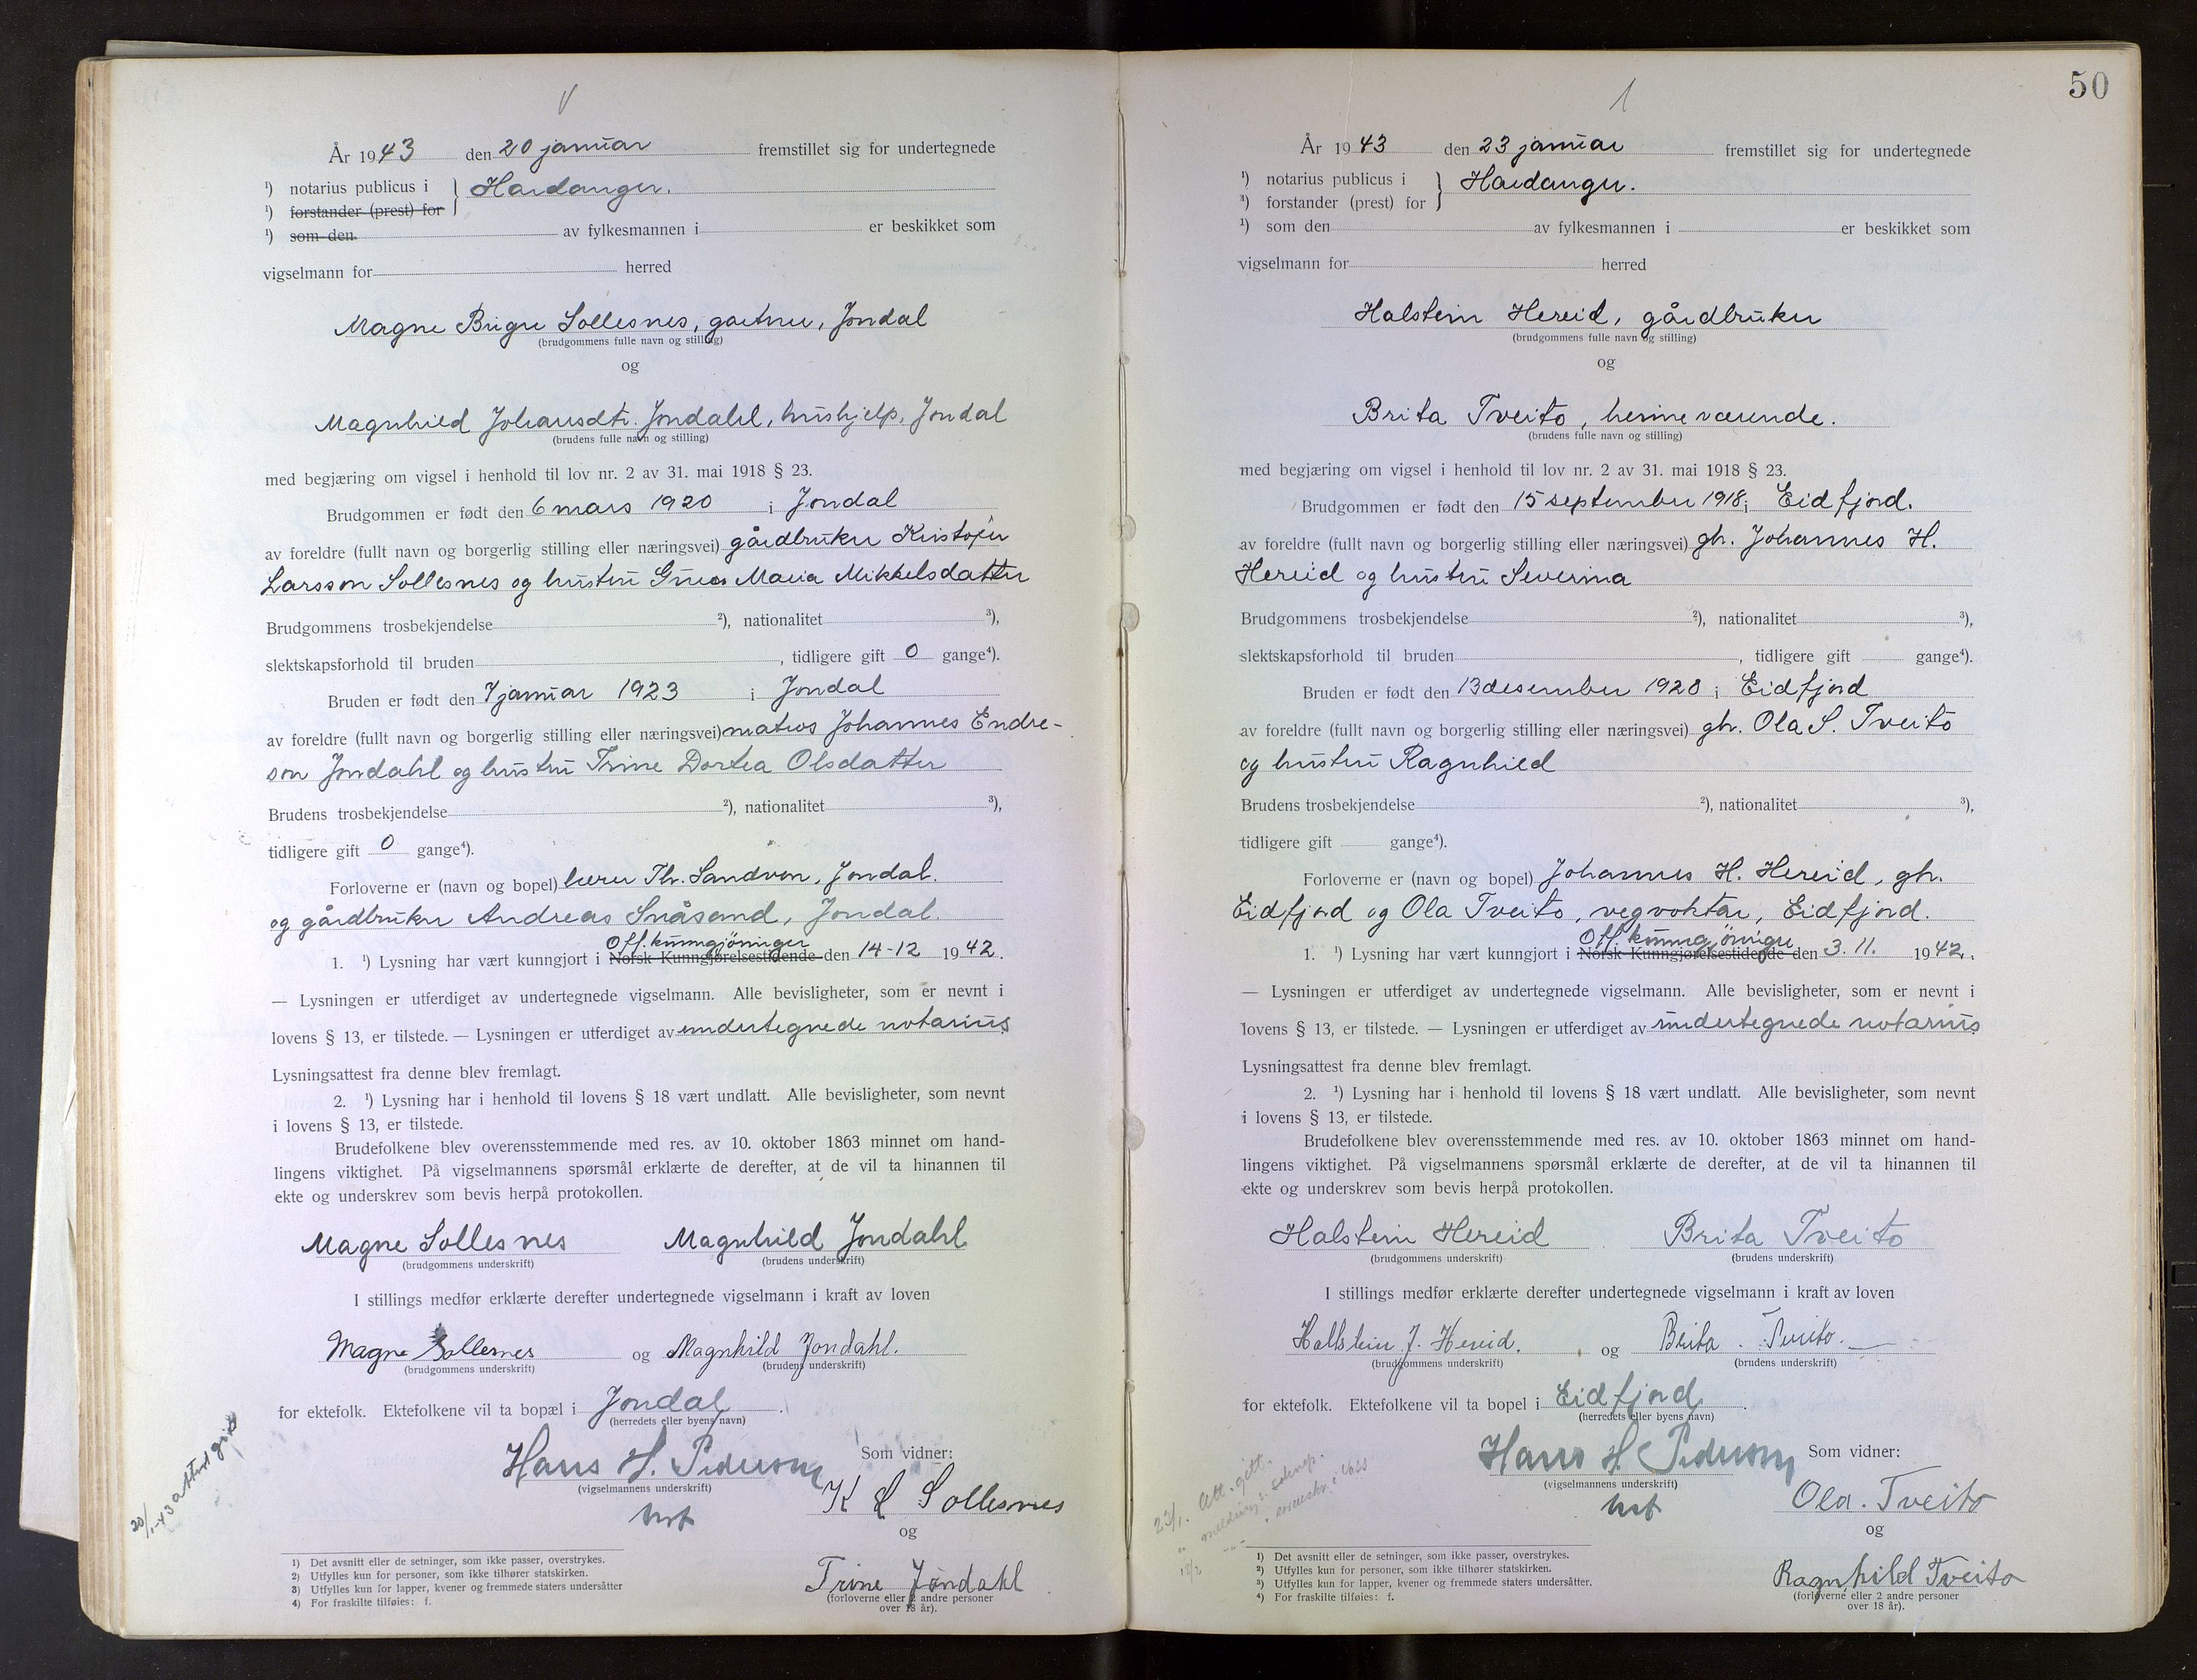 År 1943 den 20 januar fremstillet sig for undertegnede
¹) notarius publicus i } Hardanger.
¹) forstander (prest) for
¹) som den av fylkesmannen i er beskikket som
vigselmann for herred
Magne Birger Sollesnes, gartner, Jondal
(brudgommens fulle navn og stilling)
og
Magnhild Johansdtr. Jondahl, hushjelp, Jondal
(brudens fulle navn og stilling)
med begjæring om vigsel i henhold til lov nr. 2 av 31. mai 1918 § 23.
Brudgommen er født den 6 mars 1920 i Jondal
av foreldre (fullt navn og borgerlig stilling eller næringsvei) gårdbruker Kristofer
Larsson Sollesnes og hustru Maria Mikkelsdatter
Brudgommens trosbekjendelse ²), nationalitet ³),
slektskapsforhold til bruden , tidligere gift 0 gange⁴).
Bruden er født den 7 januar 1923 i Jondal
av foreldre (fullt navn og borgerlig stilling eller næringsvei) matros Johannes Endre-
son Jondahl og hustru Trine Dortea Olsdatter
Brudens trosbekjendelse ²), nationalitet ³),
tidligere gift 0 gange⁴).
Forloverne er (navn og bopel) lærer Th. Sandven, Jondal.
og gårdbruker Andreas Snåsand, Jondal.
Off. kunngjøringer
1. ¹) Lysning har vært kunngjort i Norsk Kunngjørelsestidende den 14-12 1942.
— Lysningen er utferdiget av undertegnede vigselmann. Alle bevisligheter, som er nevnt i
lovens § 13, er tilstede. — Lysningen er utferdiget av undertegnede notarius
Lysningsattest fra denne blev fremlagt.
2. ¹) Lysning har i henhold til lovens § 18 vært undlatt. Alle bevisligheter, som nevnt
i lovens § 13, er tilstede.
Brudefolkene blev overensstemmende med res. av 10. oktober 1863 minnet om hand-
lingens viktighet. På vigselmannens spørsmål erklærte de derefter, at de vil ta hinannen til
ekte og underskrev som bevis herpå protokollen.
Magne Sollesnes Magnhild Jondahl
(brudgommens underskrift) (brudens underskrift)
I stillings medfør erklærte derefter undertegnede vigselmann i kraft av loven
Magne Sollesnes og Magnhild Jondahl.
(brudgommens underskrift) (brudens underskrift)
for ektefolk. Ektefolkene vil ta bopæl i Jondal.
(herredets eller byens navn)
20/1-43 attest gitt
Som vidner:
Hans H. Pederson
(vigselmannens underskrift)
K L Sollesnes
og
Trine Jondahl
(forloverne eller 2 andre personer
over 18 år).
1) Det avsnitt eller de setninger, som ikke passer, overstrykes.
2) Utfylles kun for personer, som ikke tilhører statskirken.
3) Utfylles kun for lapper, kvener og fremmede staters undersåtter
4) For fraskilte tilføies: f.
50
År 1943 den 23 januar fremstillet sig for undertegnede
¹) notarius publicus i } Hardanger.
³) forstander (prest) for
¹) som den av fylkesmannen i er beskikket som
vigselmann for herred
Halstein Hereid, gårdbruker
(brudgommens fulle navn og stilling)
og
Brita Tveito, heimeværende.
(brudens fulle navn og stilling)
med begjæring om vigsel i henhold til lov nr. 2 av 31. mai 1918 § 23.
Brudgommen er født den 15 september 1918 i Eidfjord.
av foreldre (fullt navn og borgerlig stilling eller næringsvei) gb. Johannes H.
Hereid og hustru Severina
Brudgommens trosbekjendelse ²), nationalitet ³),
slektskapsforhold til bruden , tidligere gift gange⁴).
Bruden er født den 13 desember 1920 i Eidfjord
av foreldre (fullt navn og borgerlig stilling eller næringsvei) gb. Ola S. Tveito
og hustru Ragnhild
Brudens trosbekjendelse ²), nationalitet ³),
tidligere gift gange⁴).
Forloverne er (navn og bopel) Johannes H. Hereid, gb.
Eidfjord og Ola Tveito, vegvoktar, Eidfjord.
Off. kunngjöringer
1. ¹) Lysning har vært kunngjort i Norsk Kunngjørelsestidende den 3. 11. 1942.
— Lysningen er utferdiget av undertegnede vigselmann. Alle bevisligheter, som er nevnt i
lovens § 13, er tilstede. — Lysningen er utferdiget av undertegnede notarius
Lysningsattest fra denne blev fremlagt.
2. ¹) Lysning har i henhold til lovens § 18 vært undlatt. Alle bevisligheter, som nevnt
i lovens § 13, er tilstede.
Brudefolkene blev overensstemmende med res. av 10. oktober 1863 minnet om hand-
lingens viktighet. På vigselmannens spørsmål erklærte de derefter, at de vil ta hinannen til
ekte og underskrev som bevis herpå protokollen.
Halstein Hereid Brita Tveito
(brudgommens underskrift) (brudens underskrift)
I stillings medfør erklærte derefter undertegnede vigselmann i kraft av loven
Hallstein J. Hereid. og Brita Tveito.
(brudgommens underskrift) (brudens underskrift)
for ektefolk. Ektefolkene vil ta bopel i Eidfjord.
(herredets eller byens navn)
23/1. Att. gitt.
Som vidner:
Hans H. Pederson
(vigselmannens underskrift)
Ola. Tveito
og
Ragnhild Tveito
(forloverne eller 2 andre personer
over 18 år).
1) Det avsnitt eller de setninger, som ikke passer, overstrykes.
2) Utfylles kun for personer, som ikke tilhører statskirken.
3) Utfylles kun for lapper, kvener og fremmede staters undersåtter.
4) For fraskilte tilføies: f.